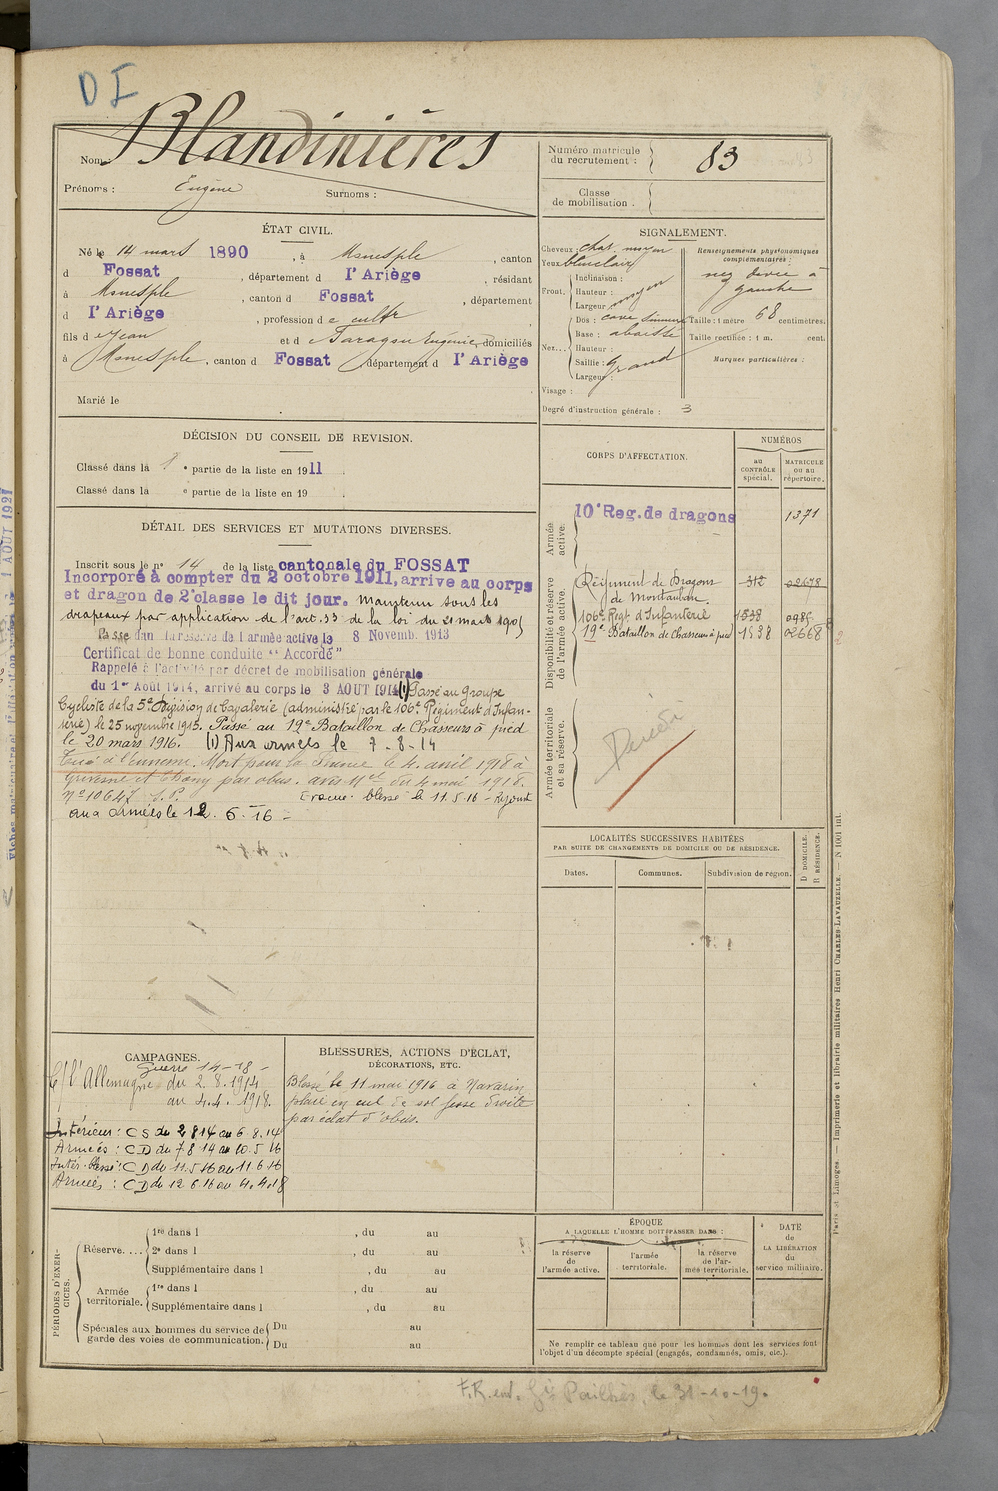 D I
Nom : Blandinières
Prénoms : Eugène Surnoms :
Numéro matricule
du recrutement : 83
Classe
de mobilisation .
ÉTAT CIVIL.
Né le 14 mars 1890 , à Monesple , canton
d Fossat , département d l'Ariège , résidant
à Monesple , canton d Fossat , département
d l'Ariège , profession de cultr
fils de Jean et d Eugénie, domiciliés
à Monesple , canton d Fossat , département d l'Ariège
Marié le
SIGNALEMENT.
Cheveux chat. moyen
Yeux bleu clair
Front. Inclinaison :
Hauteur :
Largeur moyen
Nez... Dos : cave
Base : abaissé
Hauteur :
Saillie : grand
Largeur
Visage :
Renseignements physionomiques
complémentaires :
nez dévié à
gauche
Taille : 1 mètre 68 centimètres.
Taille rectifiée : 1 m. cent.
Marques particulières :
Degré d'instruction générale : 3
DÉCISION DU CONSEIL DE REVISION.
Classé dans la 1 e partie de la liste en 1911 .
Classé dans la e partie de la liste en 19 .
DÉTAIL DES SERVICES ET MUTATIONS DIVERSES.
Inscrit sous le n° 14 de la liste cantonale du FOSSAT
Incorporé à compter du 2 octobre 1911, arrive au corps
et dragon de 2e classe le dit jour. Maintenu sous les
drapeaux par application de l'art. 33 de la loi du 21 mars 1905
Passé dans la réserve de l'armée active le 8 Novemb. 1913
Certificat de bonne conduite "Accordé"
Rappelé à l'activité par décret de mobilisation générale
du 1er Août 1914, arrivé au corps le 3 AOUT 1914 (1) Passé au Groupe
Cycliste de la 5e Division de Cavalerie (administré par le 106e Régiment d'Infan-
terie) le 25 novembre 1915. Passé au 19e Bataillon de Chasseurs à pied
le 20 mars 1916. (1) Aux armées le 7-8-14
Tué à l'ennemi. Mort pour la France le 4 avril 1918 à
Grivesne et Thory par obus. avis Mel du 4 mai 1918.
N° 10647 S.P. Evacué blessé le 11.5.16 - Rejoint
aux armées le 12.6.16 -
CORPS D'AFFECTATION.
NUMÉROS
au
CONTRÔLE
spécial.
MATRICULE
ou au
répertoire.
Armée
active.
10e Reg. de dragons 1371
Disponibilité et réserve
de l'armée active.
Régiment de Dragons 312 02678
de Montauban.
106e Régt d'Infanterie 1538
19e Bataillon de Chasseurs à pied 1538 02668
Armée territoriale
et sa réserve.
LOCALITÉS SUCCESSIVES HABITÉES
PAR SUITE DE CHANGEMENTS DE DOMICILE OU DE RÉSIDENCE.
Dates. Communes. Subdivision de région.
D DOMICILE.
R RÉSIDENCE.
CAMPAGNES.
Guerre 14-18 -
C/ l'Allemagne du 2.8.1914
au 4.4.1918.
Intérieur : CS du 2 8 14 au 6.8.14
Armées : CD du 7 8 14 au 10.5 16
Intér. blessé : CD du 11.5 16 au 11 6 16
Armées : CD du 12 6 16 au 4.4.18
BLESSURES, ACTIONS D'ÉCLAT,
DÉCORATIONS, ETC.
Blessé le 11 mai 1916 à Navarin
plaie en cul de sol fesse droite
par éclat d'obus.
PÉRIODES D'EXER-
CICES.
Réserve.... 1re dans l , du au
2e dans l , du au
Supplémentaire dans l , du au
Armée
territoriale. 1re dans l , du au
Supplémentaire dans l , du au
Spéciales aux hommes du service de
garde des voies de communication. Du au
Du au
ÉPOQUE
A LAQUELLE L'HOMME DOIT PASSER DANS :
la réserve
de
l'armée active.
l'armée
territoriale.
la réserve
de l'ar-
mée territoriale.
DATE
de
LA LIBÉRATION
du
service militaire.
Ne remplir ce tableau que pour les hommes dont les services font
l'objet d'un décompte spécial (engagés, condamnés, omis, etc.).
Paris et Limoges. — Imprimerie et librairie militaires Henri CHARLES-LAVAUZELLE. — N 1001 int.
F.R. env. Gie Pailhès, le 31-10-19.
1 AOUT 1927